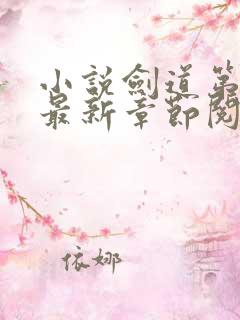 小說劍道第
最新章節閱
依娜